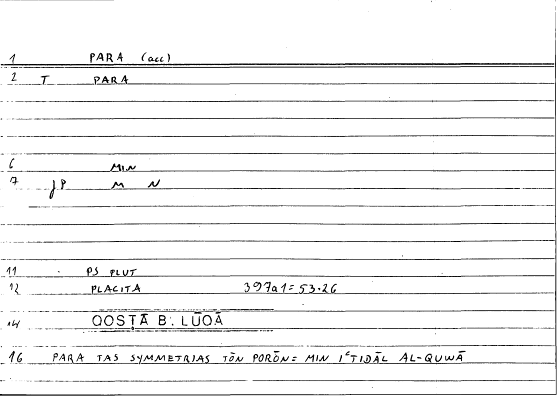 1 PARA (acc)
2 T PARA
6 MIN
7 JP M N
11 PS PLUT
12 PLACITA 397a1=53.26
14 QOSṬĀ B. LŪQĀ
16 PARA TAS SYMMETRIAS TŌN PORŌN= MIN IʿTIDĀL AL-QUWĀ